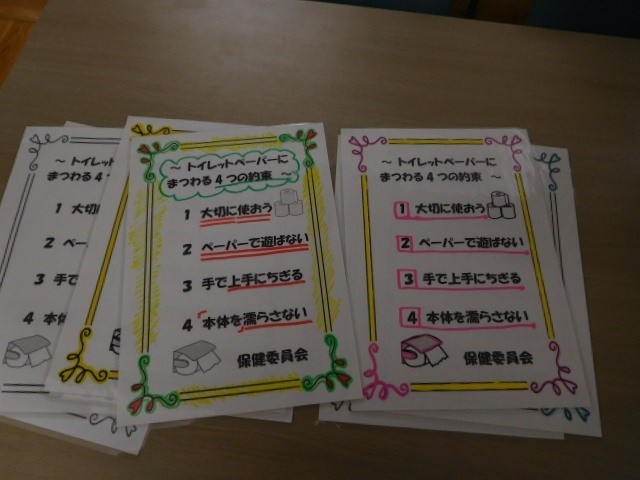 ～ トイレットペーパーに
まつわる4
1 大切
2 ペー
3 手で
4 本体
～ トイレットペーパーに
まつわる4つの約束 ～
1 大切に使おう
2 ペーパーで遊ばない
3 手で上手にちぎる
4 本体を濡らさない
保健委員会
～ トイレットペーパーに
まつわる4つの約束 ～
1 大切に使おう
2 ペーパーで遊ばない
3 手で上手にちぎる
4 本体を濡らさない
保健委員会